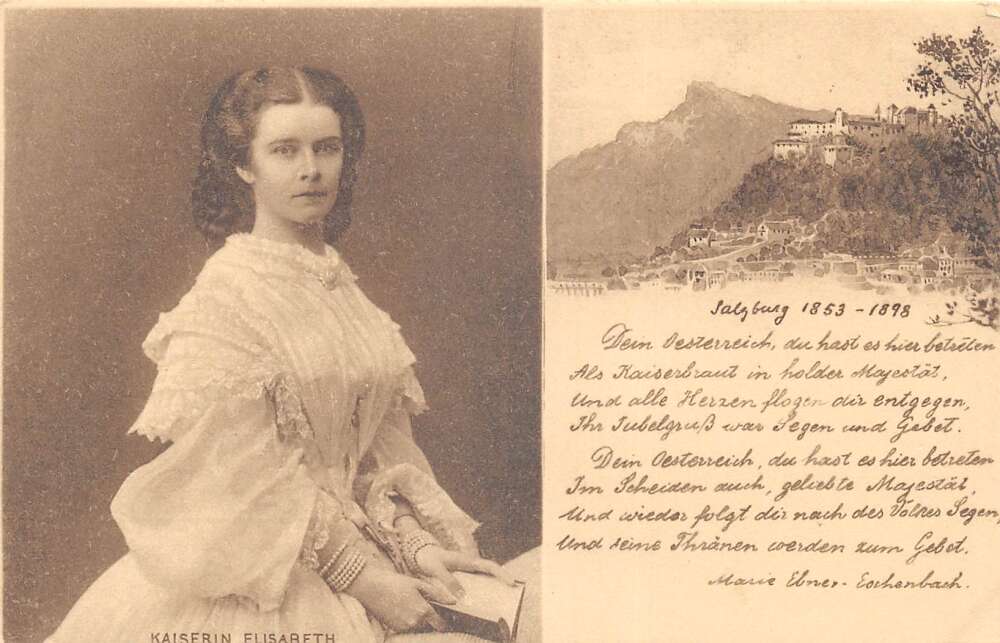 KAISERIN ELISABETH
Salzburg 1853 - 1898
Dein Oesterreich, du hast es hier betreten
Als Kaiserbraut in holder Majestät,
Und alle Herzen flogen dir entgegen,
Ihr Jubelgruß war Segen und Gebet.
Dein Oesterreich, du hast es hier betreten
Im Scheiden auch, geliebte Majestät,
Und wieder folgt dir nach des Volkes Segen,
Und seine Thränen werden zum Gebet.
Marie Ebner-Eschenbach.